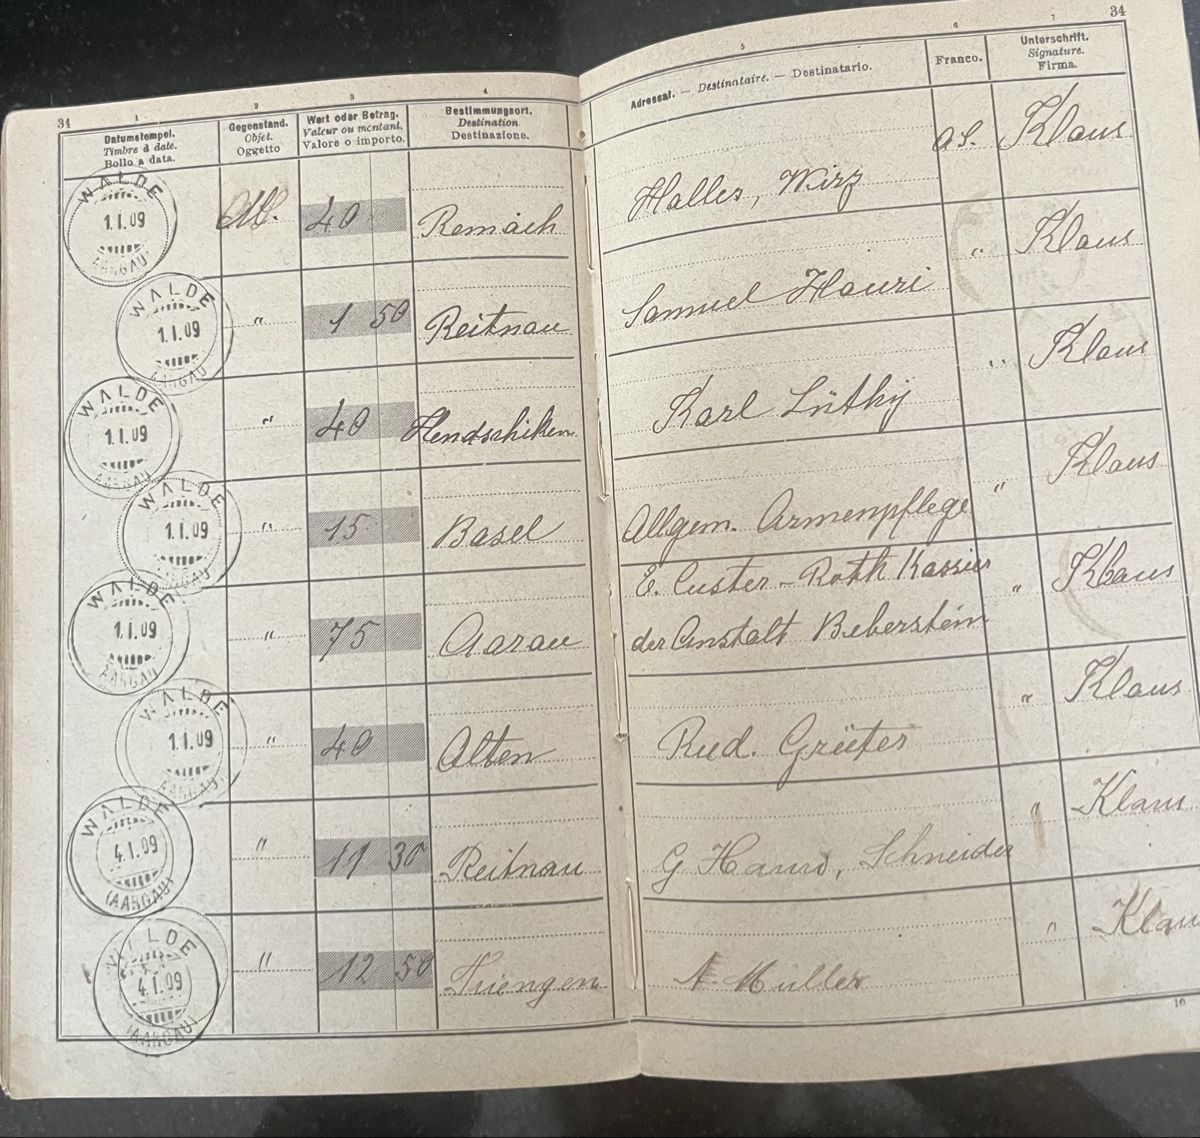 34
1
2
3
4
5
6
7
34
Datumstempel.
Timbre à date.
Bollo a data.
Gegenstand.
Objet.
Oggetto
Wert oder Betrag.
Valeur ou montant.
Valore o importo.
Bestimmungsort.
Destination
Destinazione.
Adressat. — Destinataire. — Destinatario.
Franco.
Unterschrift.
Signature.
Firma.
WALDE 1.I.09 (AARGAU) 40 Remach Halles, Wirz Klaus
WALDE 1.I.09 (AARGAU) " 1 50 Reitnau Samuel Hauri " Klaus
WALDE 1.I.09 (AARGAU) " 40 Hendschiken Karl Lüthy " Klaus
WALDE 1.I.09 (AARGAU) " 15 Basel Allgem. Armenpflege " Klaus
WALDE 1.I.09 (AARGAU) " 75 Aarau E. Custer-Roth Kassier " Klaus
der Anstalt Biberstein
WALDE 1.I.09 (AARGAU) " 40 Olten Rud. Grüter " Klaus
WALDE 4.I.09 (AARGAU) " 11 30 Reitnau G Hauri, Schneider " Klaus
WALDE 4.I.09 (AARGAU) " 12 50 Triengen A. Müller " Klaus
10